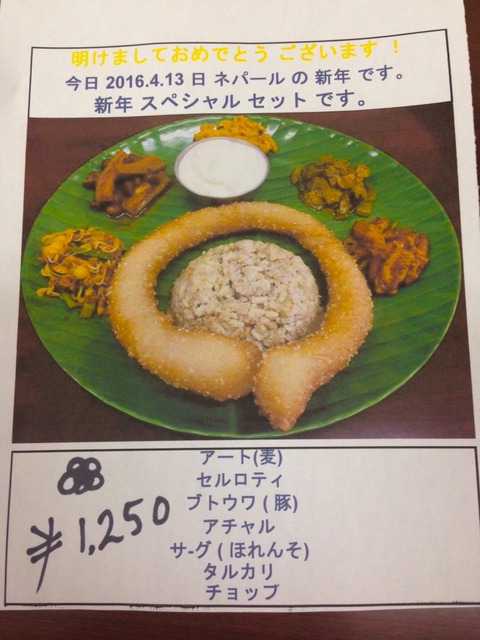 明けましておめでとう ございます ！
今日 2016.4.13 日 ネパール の 新年 です。
新年 スペシャル セット です。
アート(麦)
セルロティ
ブトウワ ( 豚)
アチャル
サ-グ ( ほれんそ)
タルカリ
チョップ
¥1,250